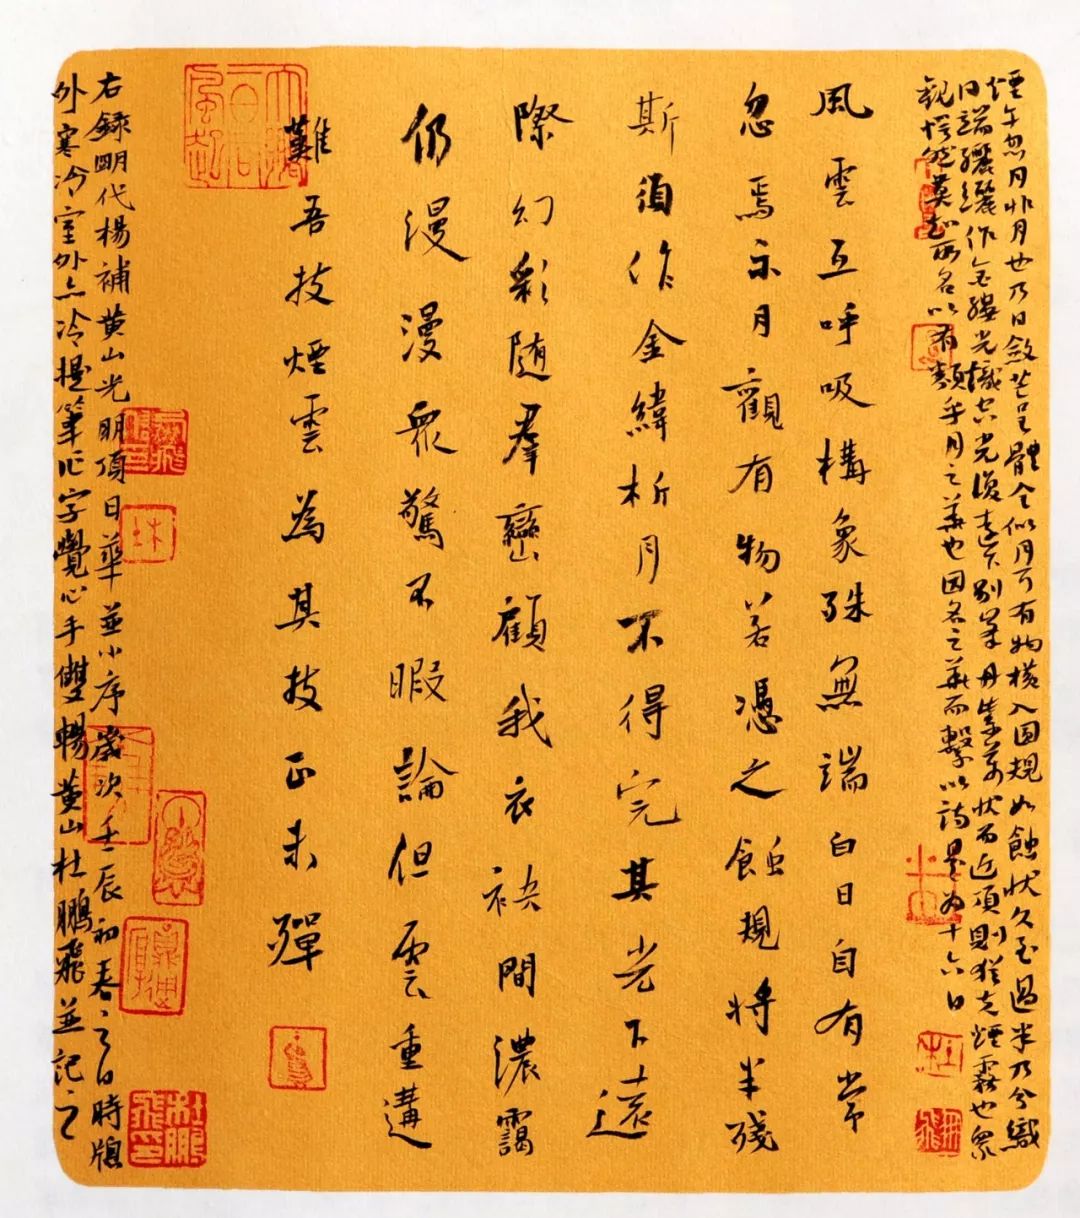 煙午忽月非月也乃日斂芒呈體全似月可有物橫入圓規如蝕狀久至過半乃分織
日端纚纚作金縷光熾空光復遠下別峯丹紫萬狀而近項則猶是煙霧也眾
觀愕然莫知所名以有類乎月之華也因名之華而繫以詩是為十六日
風雲互呼吸構象殊無端白日自有常
忽焉示月觀有物若憑之蝕規將半殘
斯須作金緯析月不得完其光下遠
際幻彩隨群巒顧我衣袂間濃靄
仍漫漫眾驚不暇論但云重遘
難吾技煙雲為其技正未殫
右錄明代楊補黃山光明頂日華並小序歲次壬辰初春之日時牕
外寒冷室外亦冷提筆作字覺心手雙暢黃山杜鵬飛並記之
杜鵬飛印